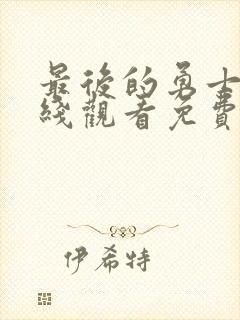 最後的勇士
綫觀看免費
伊希特